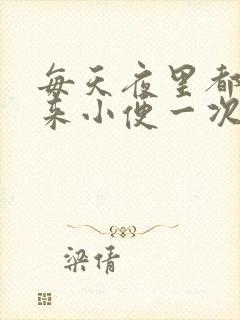 每天夜里都
来小便一次
梁倩